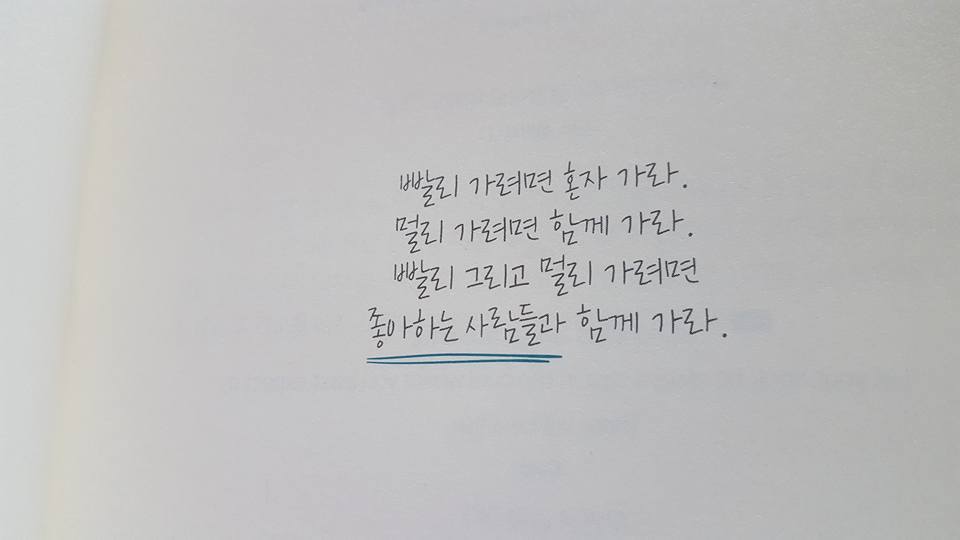 빨리 가려면 혼자 가라.
멀리 가려면 함께 가라.
빨리 그리고 멀리 가려면
좋아하는 사람들과 함께 가라.